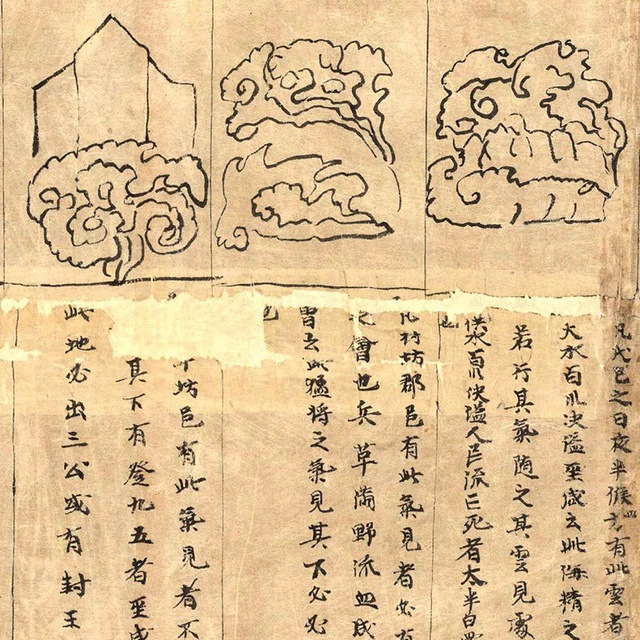 凡戊己之日夜半候有此雲者
大水百川決溢至成云此海精之
若行其氣隨之其雲見處
洪水百川決溢人民流亡死者太半
也
凡村坊郡邑有此氣見者必有
也兵革滿野流血成
曾云此猛將之氣見其下必必
也
坊邑有此氣見者不
其下有登九五者至成
此地必出三公或有封王